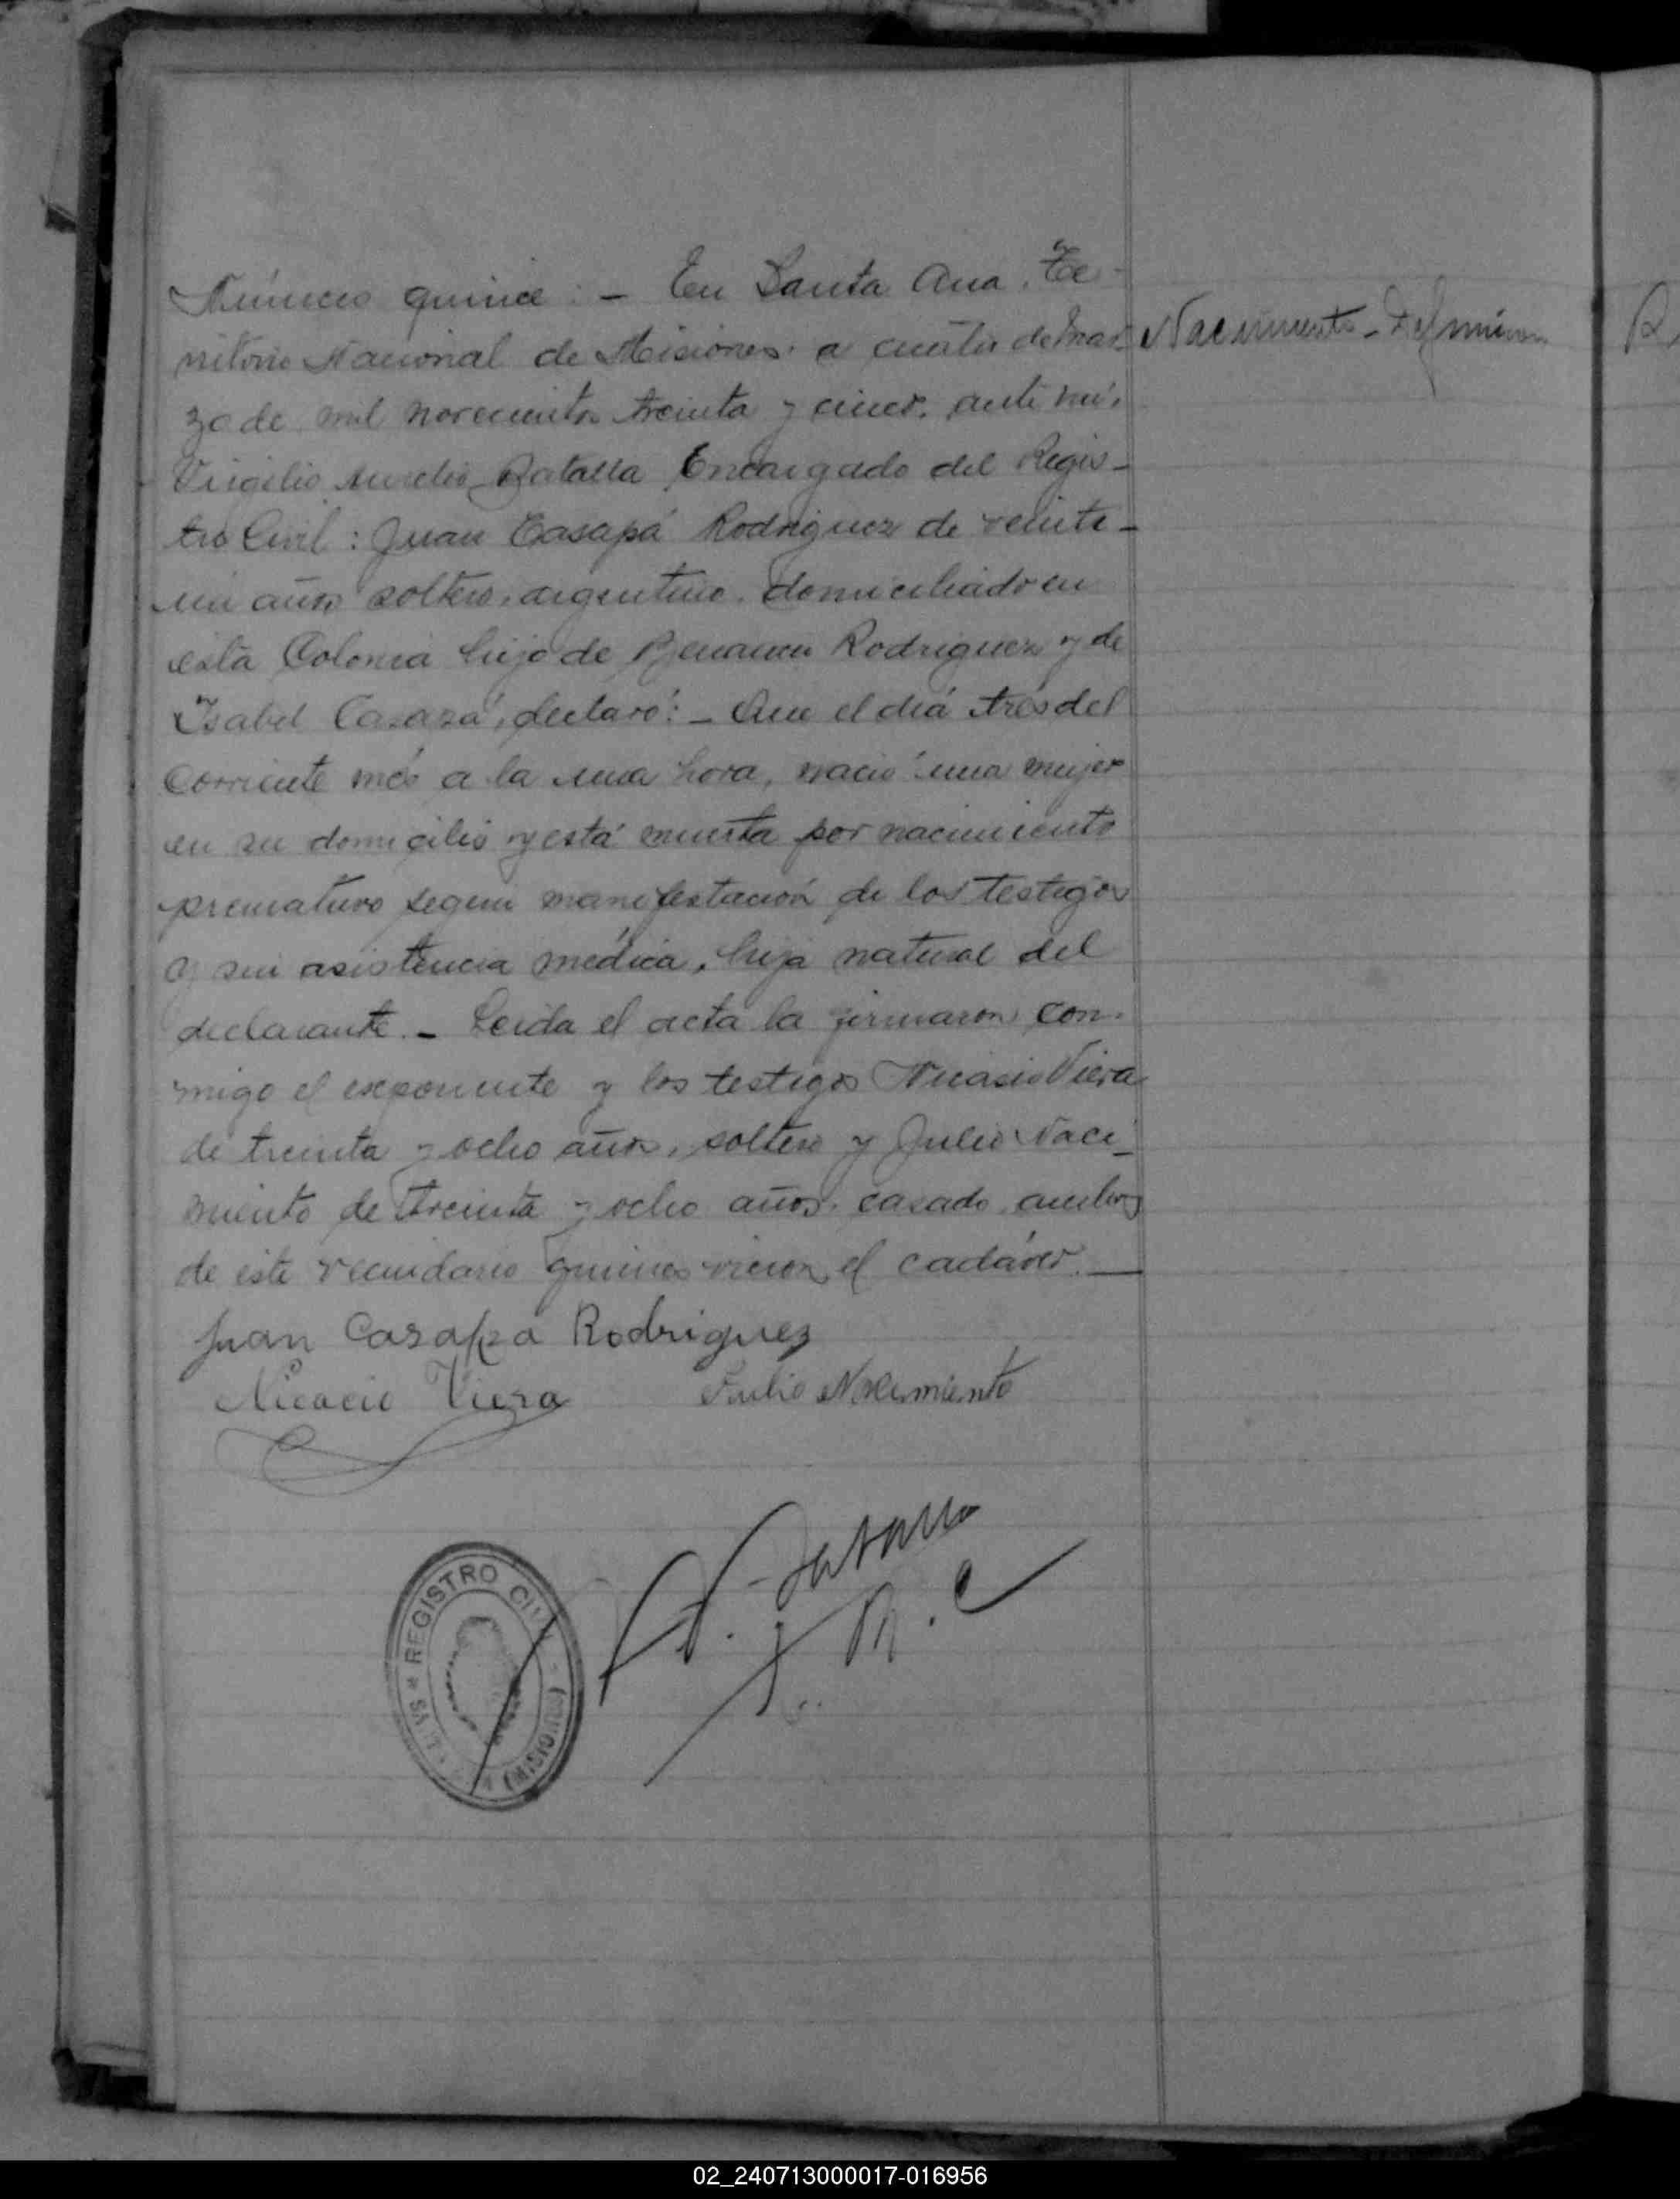 Número quince: - En Santa Ana, Te-
rritorio Nacional de Misiones, a cuatro de mar-
zo de mil novecientos treinta y cinco, ante mi,
Virgilio Aurelio Batalla Encargado del Regis-
tro Civil: Juan Casapá Rodriguez de veinte-
un años soltero, argentino, domiciliado en
esta Colonia hijo de Rodriguez y de
Isabel declaró: - Que el día tres del
corriente més a la una hora, nació una mujer
en su domicilio y está muerta por nacimiento
prematuro segun manifestación de los testigos
y sin asistencia médica, hija natural del
declarante. - Leida el acta la firmaron con-
migo el exponente y los testigos Nicasio Viera
de treinta y ocho años, soltero y Julio Naci-
miento de treinta y ocho años, casado, ambos
de este vecindario quienes vieron el cadáver. —
Juan Casapa Rodriguez
Nicacio Viera Julio Nacimiento
Batalla
REGISTRO CIVIL
(MISIONES)
Nacimiento - Defunción
02_240713000017-016956